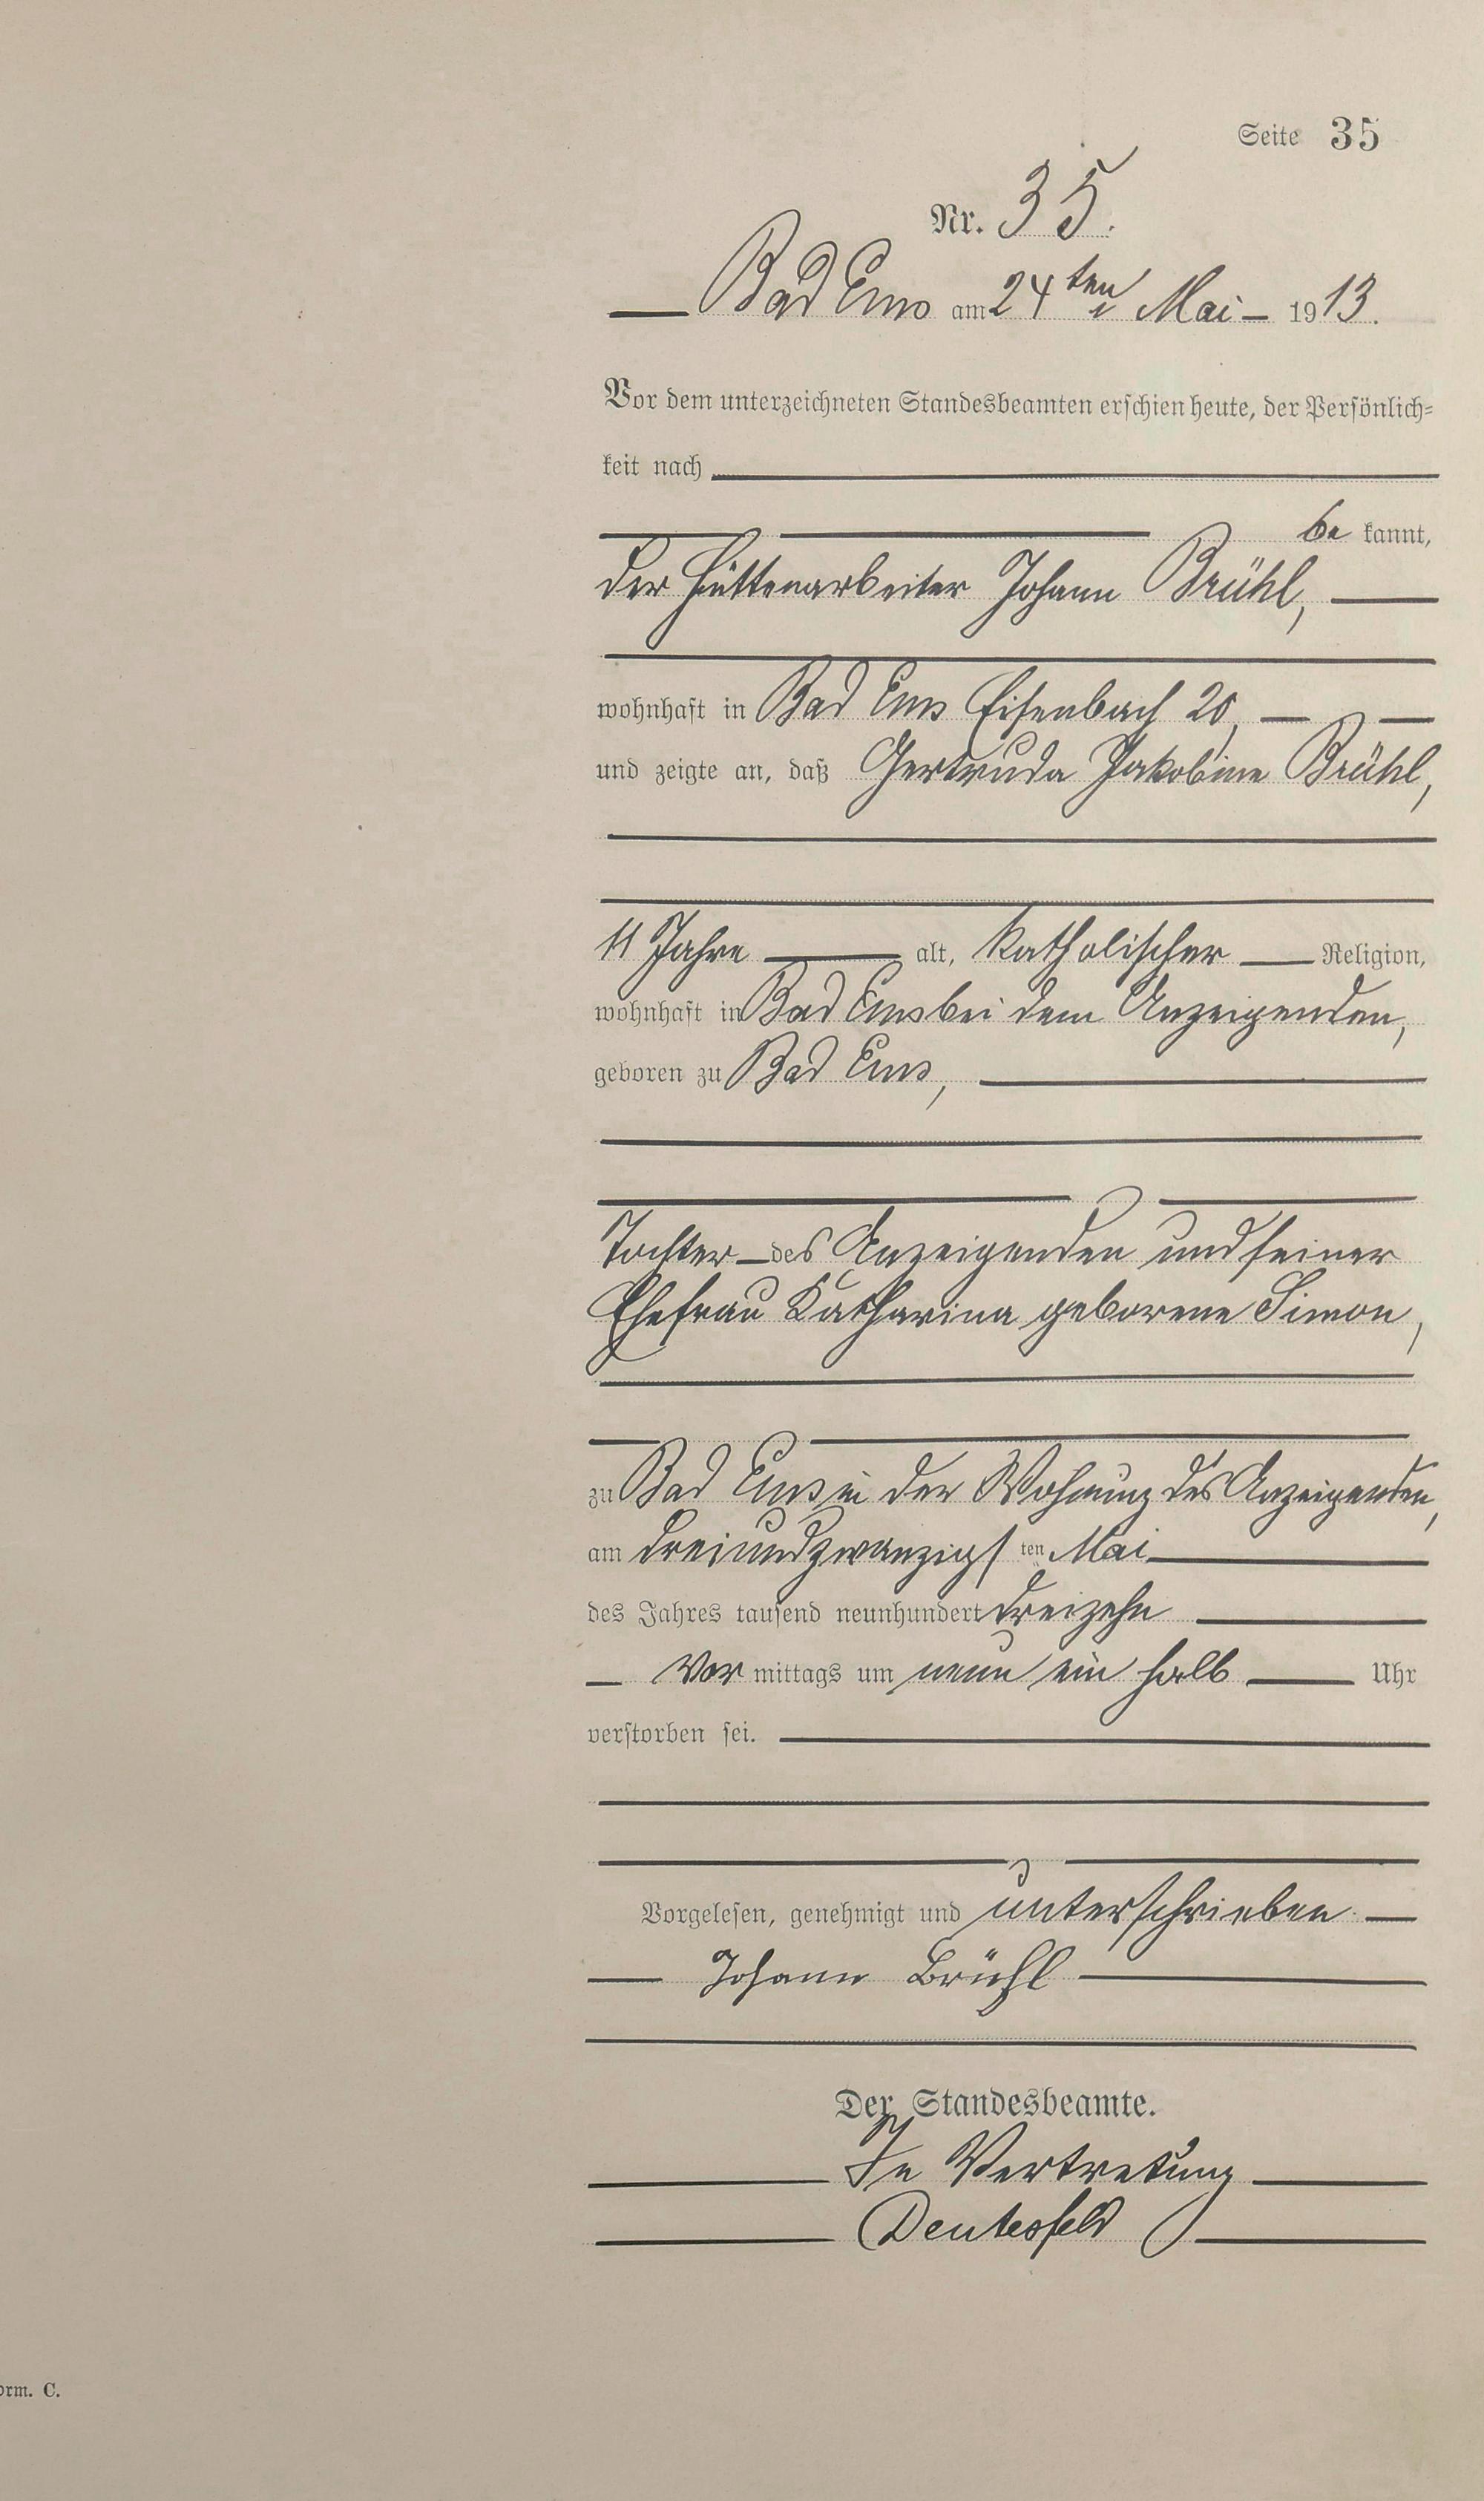 Seite 35
Nr. 35.
Bad Ems am 24ten Mai 1913.
Vor dem unterzeichneten Standesbeamten erschien heute, der Persönlich=
keit nach
be kannt,
der Hüttenarbeiter Johann Brühl,
wohnhaft in Bad Ems Eisenbach 20,
und zeigte an, daß Gertruda Jakobine Brühl,
11 Jahre alt, katholischer Religion,
wohnhaft in Bad Ems bei dem Anzeigenden,
geboren zu Bad Ems,
Tochter des Anzeigenden und seiner
Ehefrau Katharina geborene Simon,
zu Bad Ems in der Wohnung des Anzeigenden,
am dreiundzwanzigsten Mai
des Jahres tausend neunhundert dreizehn
Vor mittags um neun ein halb Uhr
verstorben sei.
Vorgelesen, genehmigt und unterschrieben
Johann Brühl
Der Standesbeamte.
In Vertretung
Deutesfeld
orm. C.